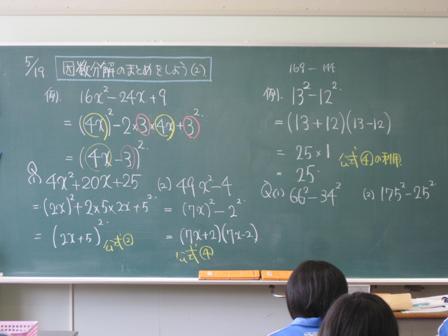 5/19 因数分解のまとめをしよう(2)
例. 16x²-24x+9
=(4x)²-2×3×4x+3²
=(4x-3)²
Q(1) 4x²+20x+25
=(2x)²+2×5×2x+5²
=(2x+5)²
公式②
(2) 49x²-4
=(7x)²-2²
=(7x+2)(7x-2)
公式④
169-144
例. 13²-12²
=(13+12)(13-12)
=25×1
公式④の利用
=25
Q(1) 66²-34² (2) 175²-25²